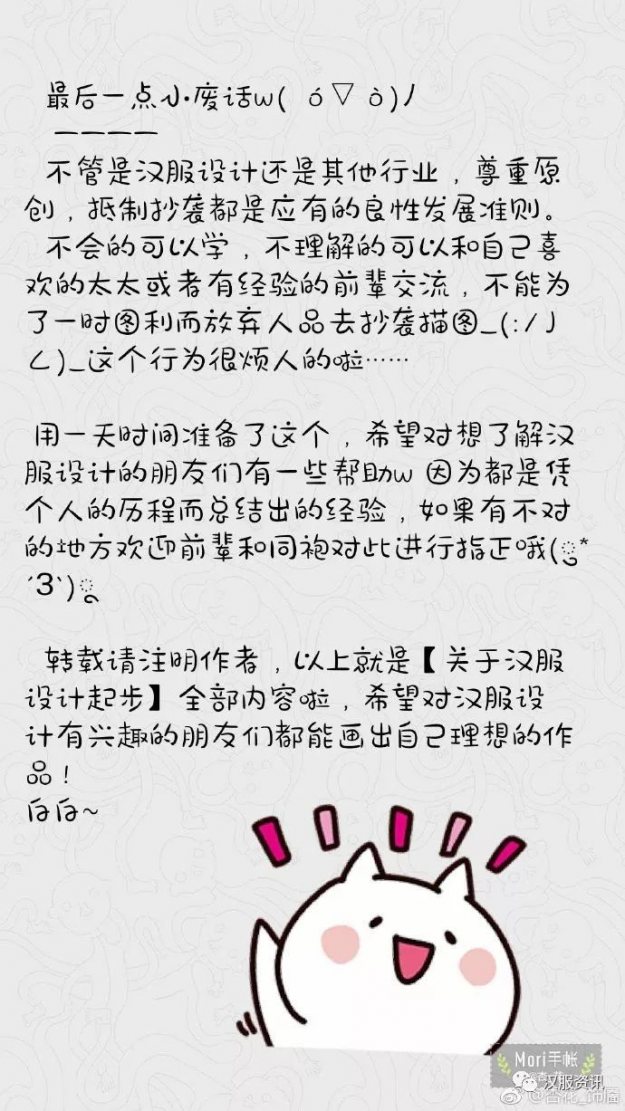 最后一点小废话w( ó▽ò)ﾉ
————
不管是汉服设计还是其他行业，尊重原
创，抵制抄袭都是应有的良性发展准则。
不会的可以学，不理解的可以和自己喜
欢的太太或者有经验的前辈交流，不能为
了一时图利而放弃人品去抄袭描图_(:ﾉ｣
∠)_这个行为很烦人的啦……
用一天时间准备了这个，希望对想了解汉
服设计的朋友们有一些帮助w 因为都是凭
个人的历程而总结出的经验，如果有不对
的地方欢迎前辈和同袍对此进行指正哦(ુ*
´3`)ुૂ
转载请注明作者，以上就是【关于汉服
设计起步】全部内容啦，希望对汉服设
计有兴趣的朋友们都能画出自己理想的作
品！
白白~
Mori手帐
汉服资讯